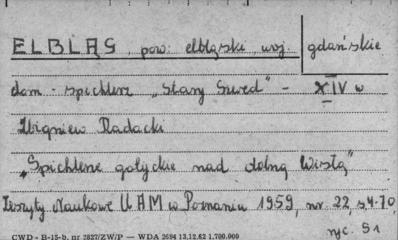 ELBLĄG, pow. elbląski, woj. gdańskie
dom - spichlerz "Stary Szwed" - XIV w
Zbigniew Radacki
"Spichlerze gotyckie nad dolną Wisłą"
Zeszyty Naukowe UAM w Poznaniu 1959, nr. 22, s 4-70,
ryc. 51
CWD - B-15-b, nr 2827/ZW/P — WDA 2694 13.12.62 1.700.000